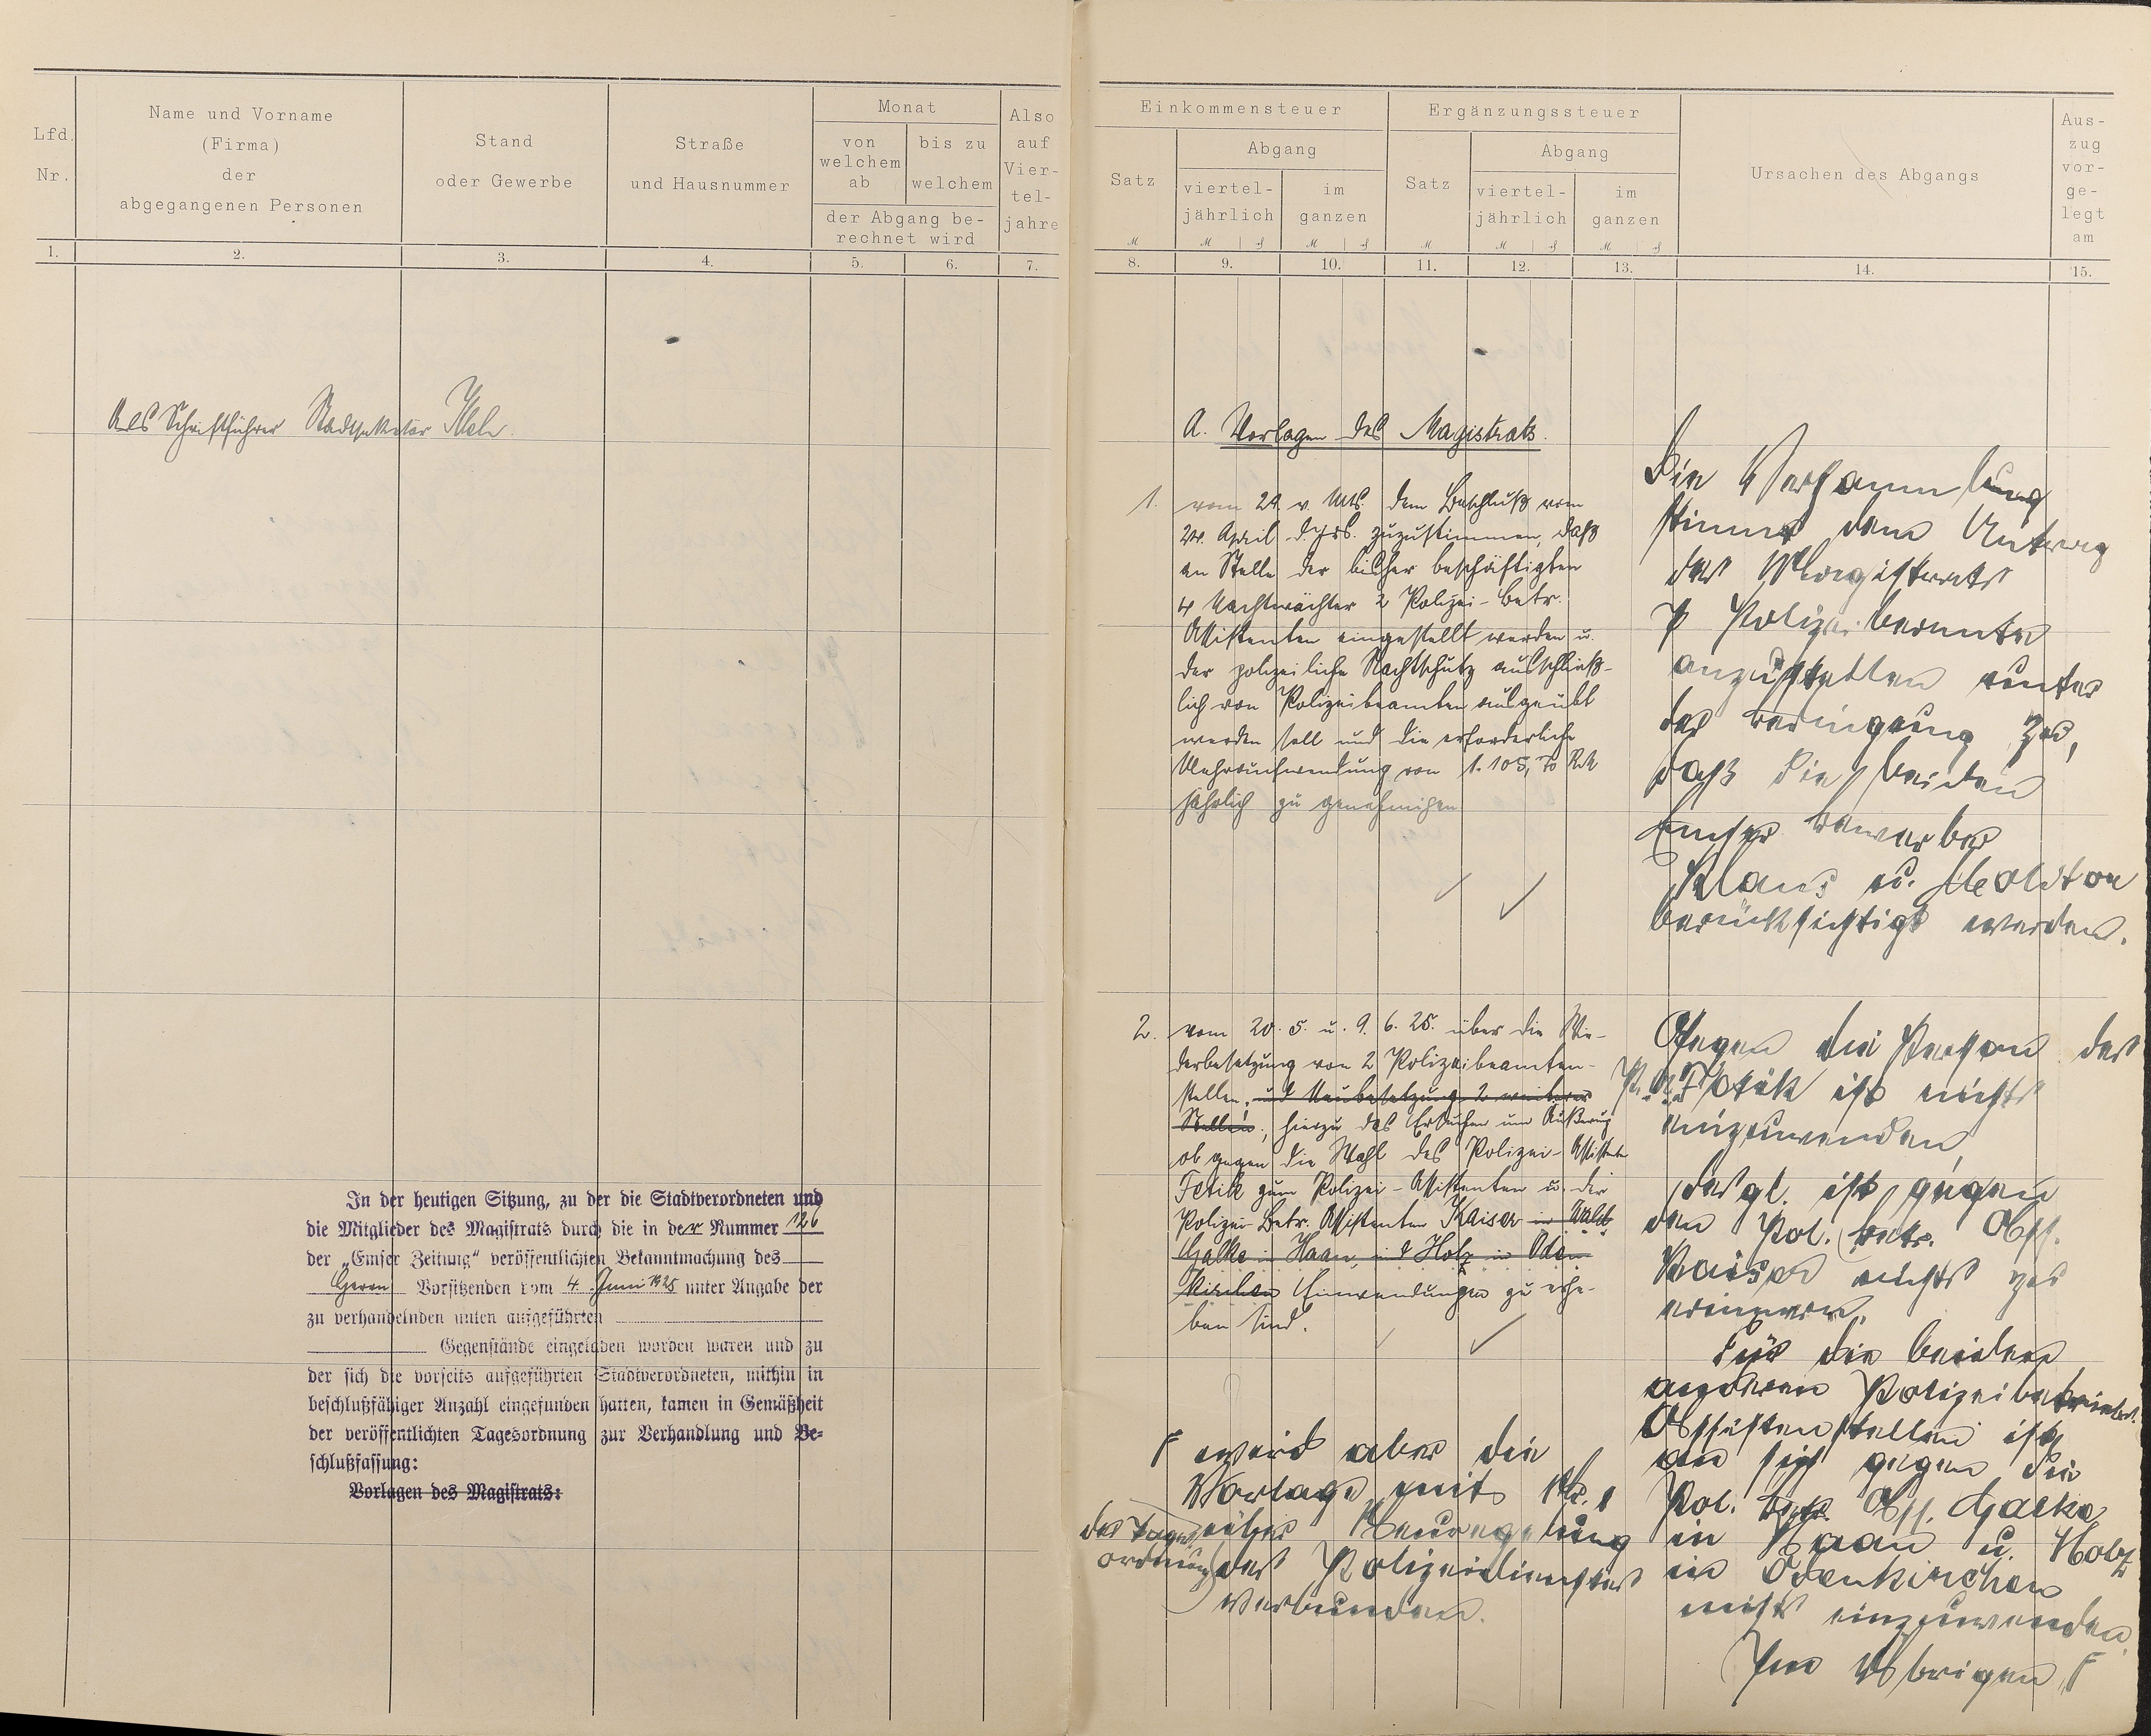 Lfd.
Nr.
Name und Vorname
(Firma)
der
abgegangenen Personen
Stand
oder Gewerbe
Straße
und Hausnummer
Monat
von
welchem
ab
bis zu
welchem
der Abgang be-
rechnet wird
Also
auf
Vier-
tel-
jahre
1.
2.
3.
4.
5.
6.
7.
Als Schriftführer Stadtsekretär
In der heutigen Sitzung, zu der die Stadtverordneten und
die Mitglieder des Magistrats durch die in der Nummer 126
der „Emser Zeitung“ veröffentlichten Bekanntmachung des
Herrn Vorsitzenden vom 4. Juni 1925 unter Angabe der
zu verhandelnden unten aufgeführten
Gegenstände eingeladen worden waren und zu
der sich die vorseits aufgeführten Stadtverordneten, mithin in
beschlußfähiger Anzahl eingefunden hatten, kamen in Gemäßheit
der veröffentlichten Tagesordnung zur Verhandlung und Be-
schlußfassung:
Vorlagen des Magistrats:
Einkommensteuer
Satz
Abgang
viertel-
jährlich
im
ganzen
Ergänzungssteuer
Satz
Abgang
viertel-
jährlich
im
ganzen
Ursachen des Abgangs
Aus-
zug
vor-
ge-
legt
am
8.
9.
10.
11.
12.
13.
14.
15.
A. Vorlagen des Magistrats.
1. vom 29. v. Mts. dem Beschluß vom
24. April d. Jrs. zuzustimmen, daß
an Stelle der bisher beschäftigten
4 Nachtwächter 2 Polizei-Betr.
Assistenten eingestellt werden u.
der polizeiliche Nachtschutz ausschließ-
lich von Polizeibeamten ausgeübt
werden soll und die erforderliche
Mehraufwendung von 1.105,70 RM
jährlich zu genehmigen
Die Versammlung
stimmt dem Antrag
des Magistrats
Polizeibeamte
anzustellen unter
der Bedingung zu,
daß die beiden
Emser Bewerber
Klaus u. Molitor
berücksichtigt werden.
2. vom 20. 5. u. 9. 6. 25. über die Wie-
derbesetzung von 2 Polizeibeamten-
stellen, und Neubesetzung 2 weiterer
Stellen; hierzu das Ersuchen um Äußerung
ob gegen die Wahl des Polizei-Assistenten
Fetik zum Polizei-Assistenten u. der
Polizei-Betr. Assistenten Kaiser in Wald
Galka in Haan, und Holz in Oden-
kirchen Einwendungen zu erhe-
ben sind.
Gegen die Person des
Fetik ist nichts
einzuwenden,
desgl. ist gegen
den Pol. Betr. Ass.
Kaiser nichts zu
erinnern.
Für die beiden
anderen Polizeibetriebs-
Assistentenstellen ist
an sich gegen die
Pol. Betr. Ass. Galka
in Haan u. Holz
in Odenkirchen
nichts einzuwenden.
Im Übrigen F
F wird aber die
Vorlage mit Nr. 1
der Tages-
ordnung
über Neuregelung
des Polizeidienstes
verbunden.